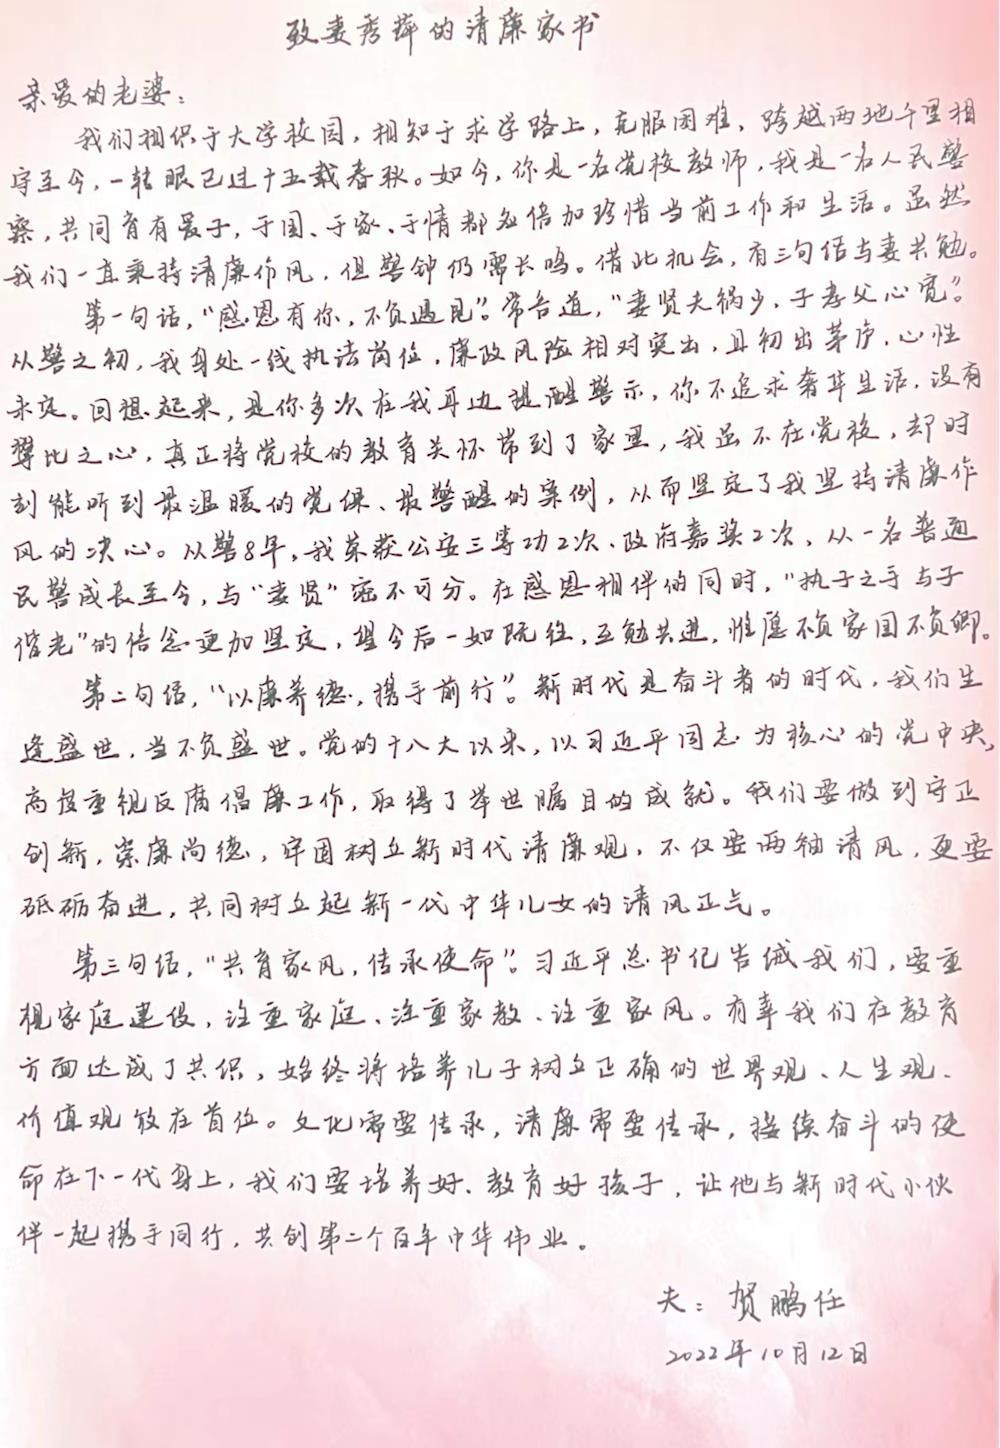 致妻秀萍的清廉家书
亲爱的老婆：
我们相识于大学校园，相知于求学路上，克服困难、跨越两地千里相
守至今，一转眼已过十五载春秋。如今，你是一名党校教师，我是一名人民警
察，共同育有爱子，于国、于家、于情都应倍加珍惜当前工作和生活。虽然
我们一直秉持清廉作风，但警钟仍需长鸣。借此机会，有三句话与妻共勉。
第一句话，“感恩有你，不负遇见”。常言道，“妻贤夫祸少，子孝父心宽”。
从警之初，我身处一线执法岗位，廉政风险相对突出，且初出茅庐，心性
未定。回想起来，是你多次在我耳边提醒警示，你不追求奢华生活，没有
攀比之心，真正将党校的教育关怀带到了家里，我虽不在党校，却时
刻能听到最温暖的党课、最警醒的案例，从而坚定了我坚持清廉作
风的决心。从警8年，我荣获公安三等功2次、政府嘉奖2次，从一名普通
民警成长至今，与“妻贤”密不可分。在感恩相伴的同时，“执子之手与子
偕老”的信念更加坚定，望今后一如既往，互勉共进，惟愿不负家国不负卿。
第二句话，“以廉养德，携手前行”。新时代是奋斗者的时代，我们生
逢盛世，当不负盛世。党的十八大以来，以习近平同志为核心的党中央，
高度重视反腐倡廉工作，取得了举世瞩目的成就。我们要做到守正
创新，崇廉尚德，牢固树立新时代清廉观，不仅要两袖清风，更要
砥砺奋进，共同树立起新一代中华儿女的清风正气。
第三句话，“共育家风，传承使命”。习近平总书记告诫我们，要重
视家庭建设，注重家庭、注重家教、注重家风。有幸我们在教育
方面达成了共识，始终将培养儿子树立正确的世界观、人生观、
价值观放在首位。文化需要传承，清廉需要传承，接续奋斗的使
命在下一代身上，我们要培养好、教育好孩子，让他与新时代小伙
伴一起携手同行，共创第二个百年中华伟业。
夫：贺鹏任
2022年10月12日